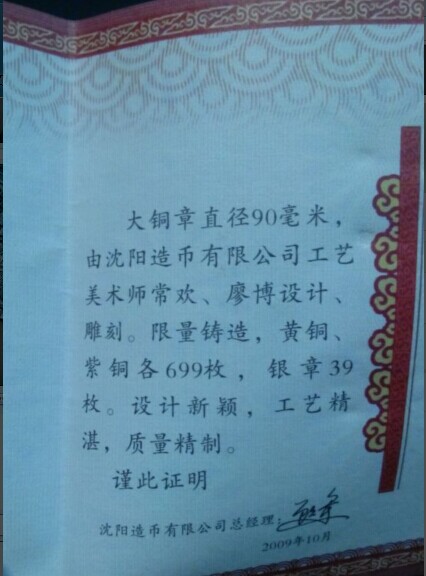 大铜章直径90毫米，
由沈阳造币有限公司工艺
美术师常欢、廖博设计、
雕刻。限量铸造，黄铜、
紫铜各699枚，银章39
枚。设计新颖，工艺精
湛，质量精制。
谨此证明
沈阳造币有限公司总经理：
2009年10月